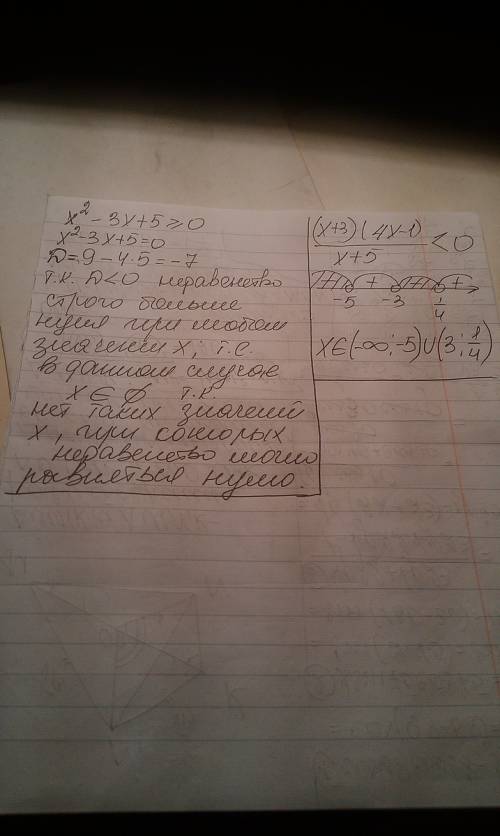 x² - 3x + 5 ≥ 0
x² - 3x + 5 = 0
D = 9 - 4·5 = -7
т.к. D < 0 неравенство
строго больше
нуля при любом
значении x, т.е.
в данном случае
x ∈ ∅ т.к.
нет таких значений
x, при которых
неравенство могло
равняться нулю.
(x+3)(4x-1)
< 0
x+5
+ +
-5 -3 1/4
x ∈ (-∞; -5) ∪ (3; 1/4)